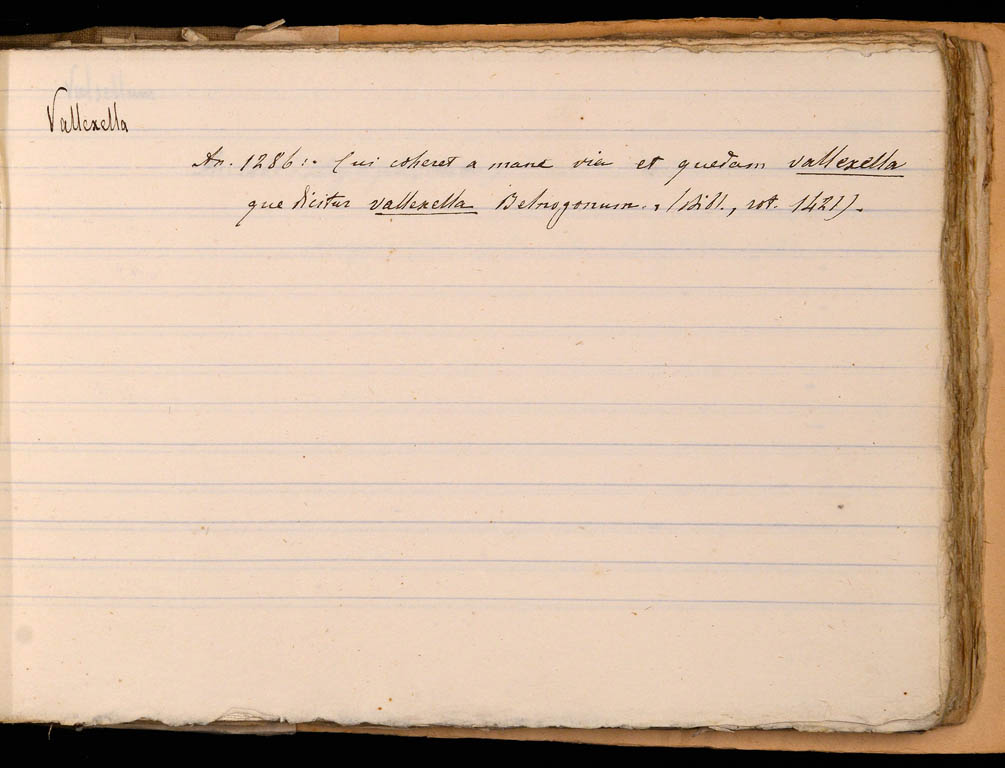 Vallexella
An. 1286: Cui coheret a mane via et quedam vallexella
que dicitur vallexella Belnogonum. (Bibl., rot. 1421).